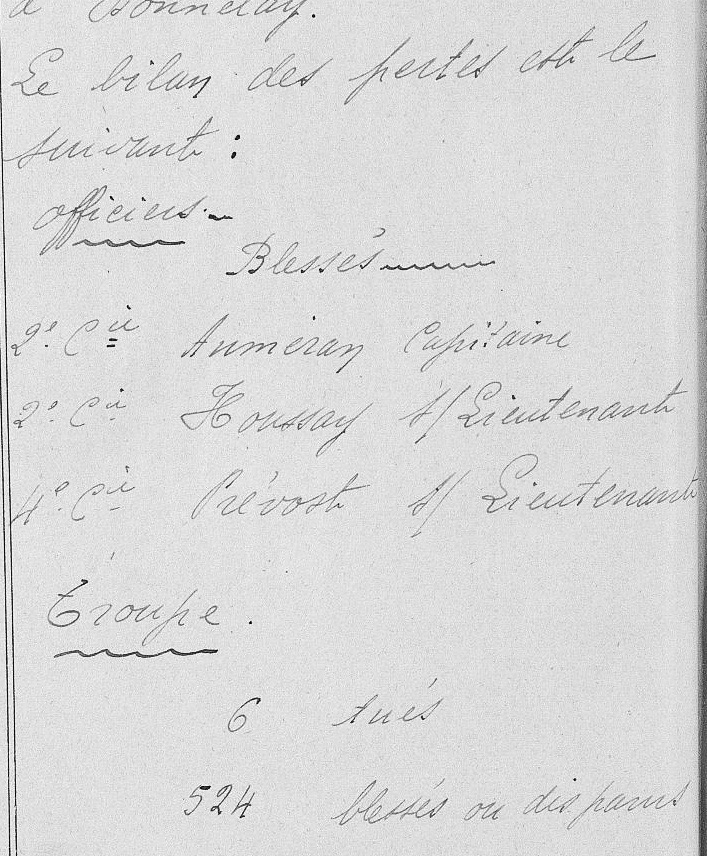 à Bonnelay.
Le bilan des pertes est le
suivant :
officiers.
Blessés
2e Cie Auméran Capitaine
2e Cie Houssay S/Lieutenant
4e Cie Prévost S/ Lieutenant
Troupe.
6 tués
524 blessés ou disparus